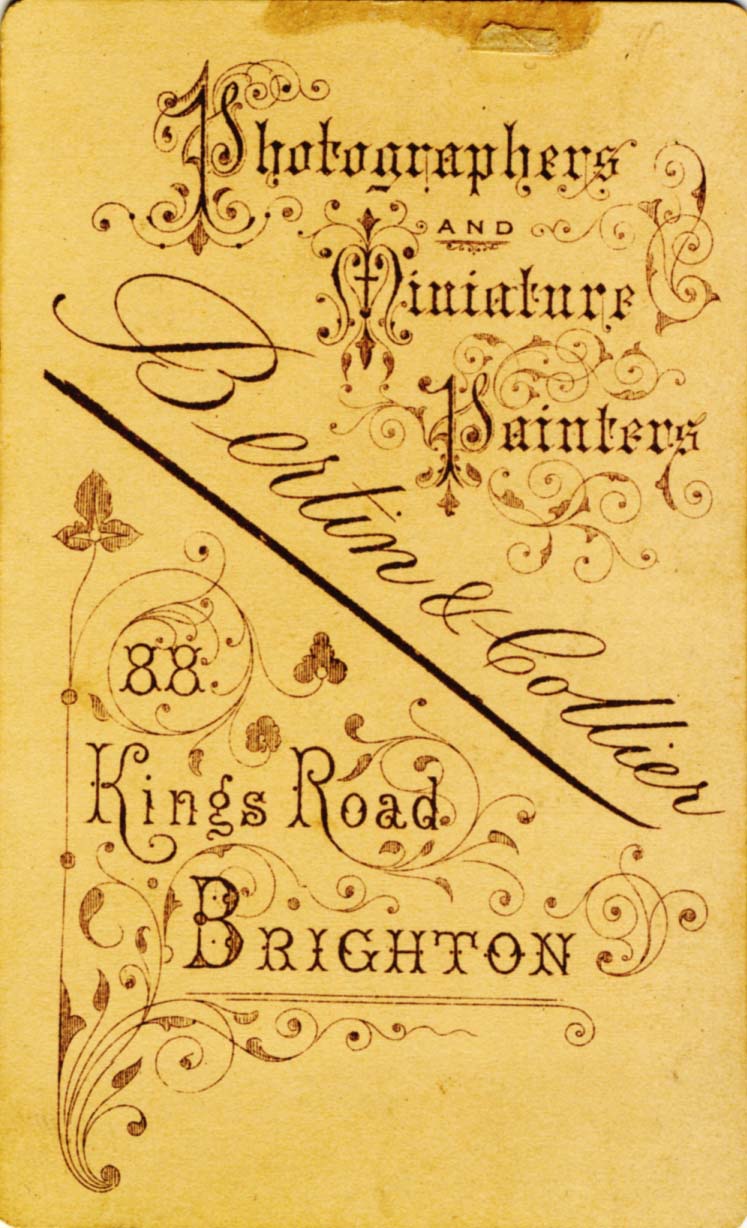 Photographers
AND
Miniature
Painters
Bertin & Collier
88
Kings Road
BRIGHTON